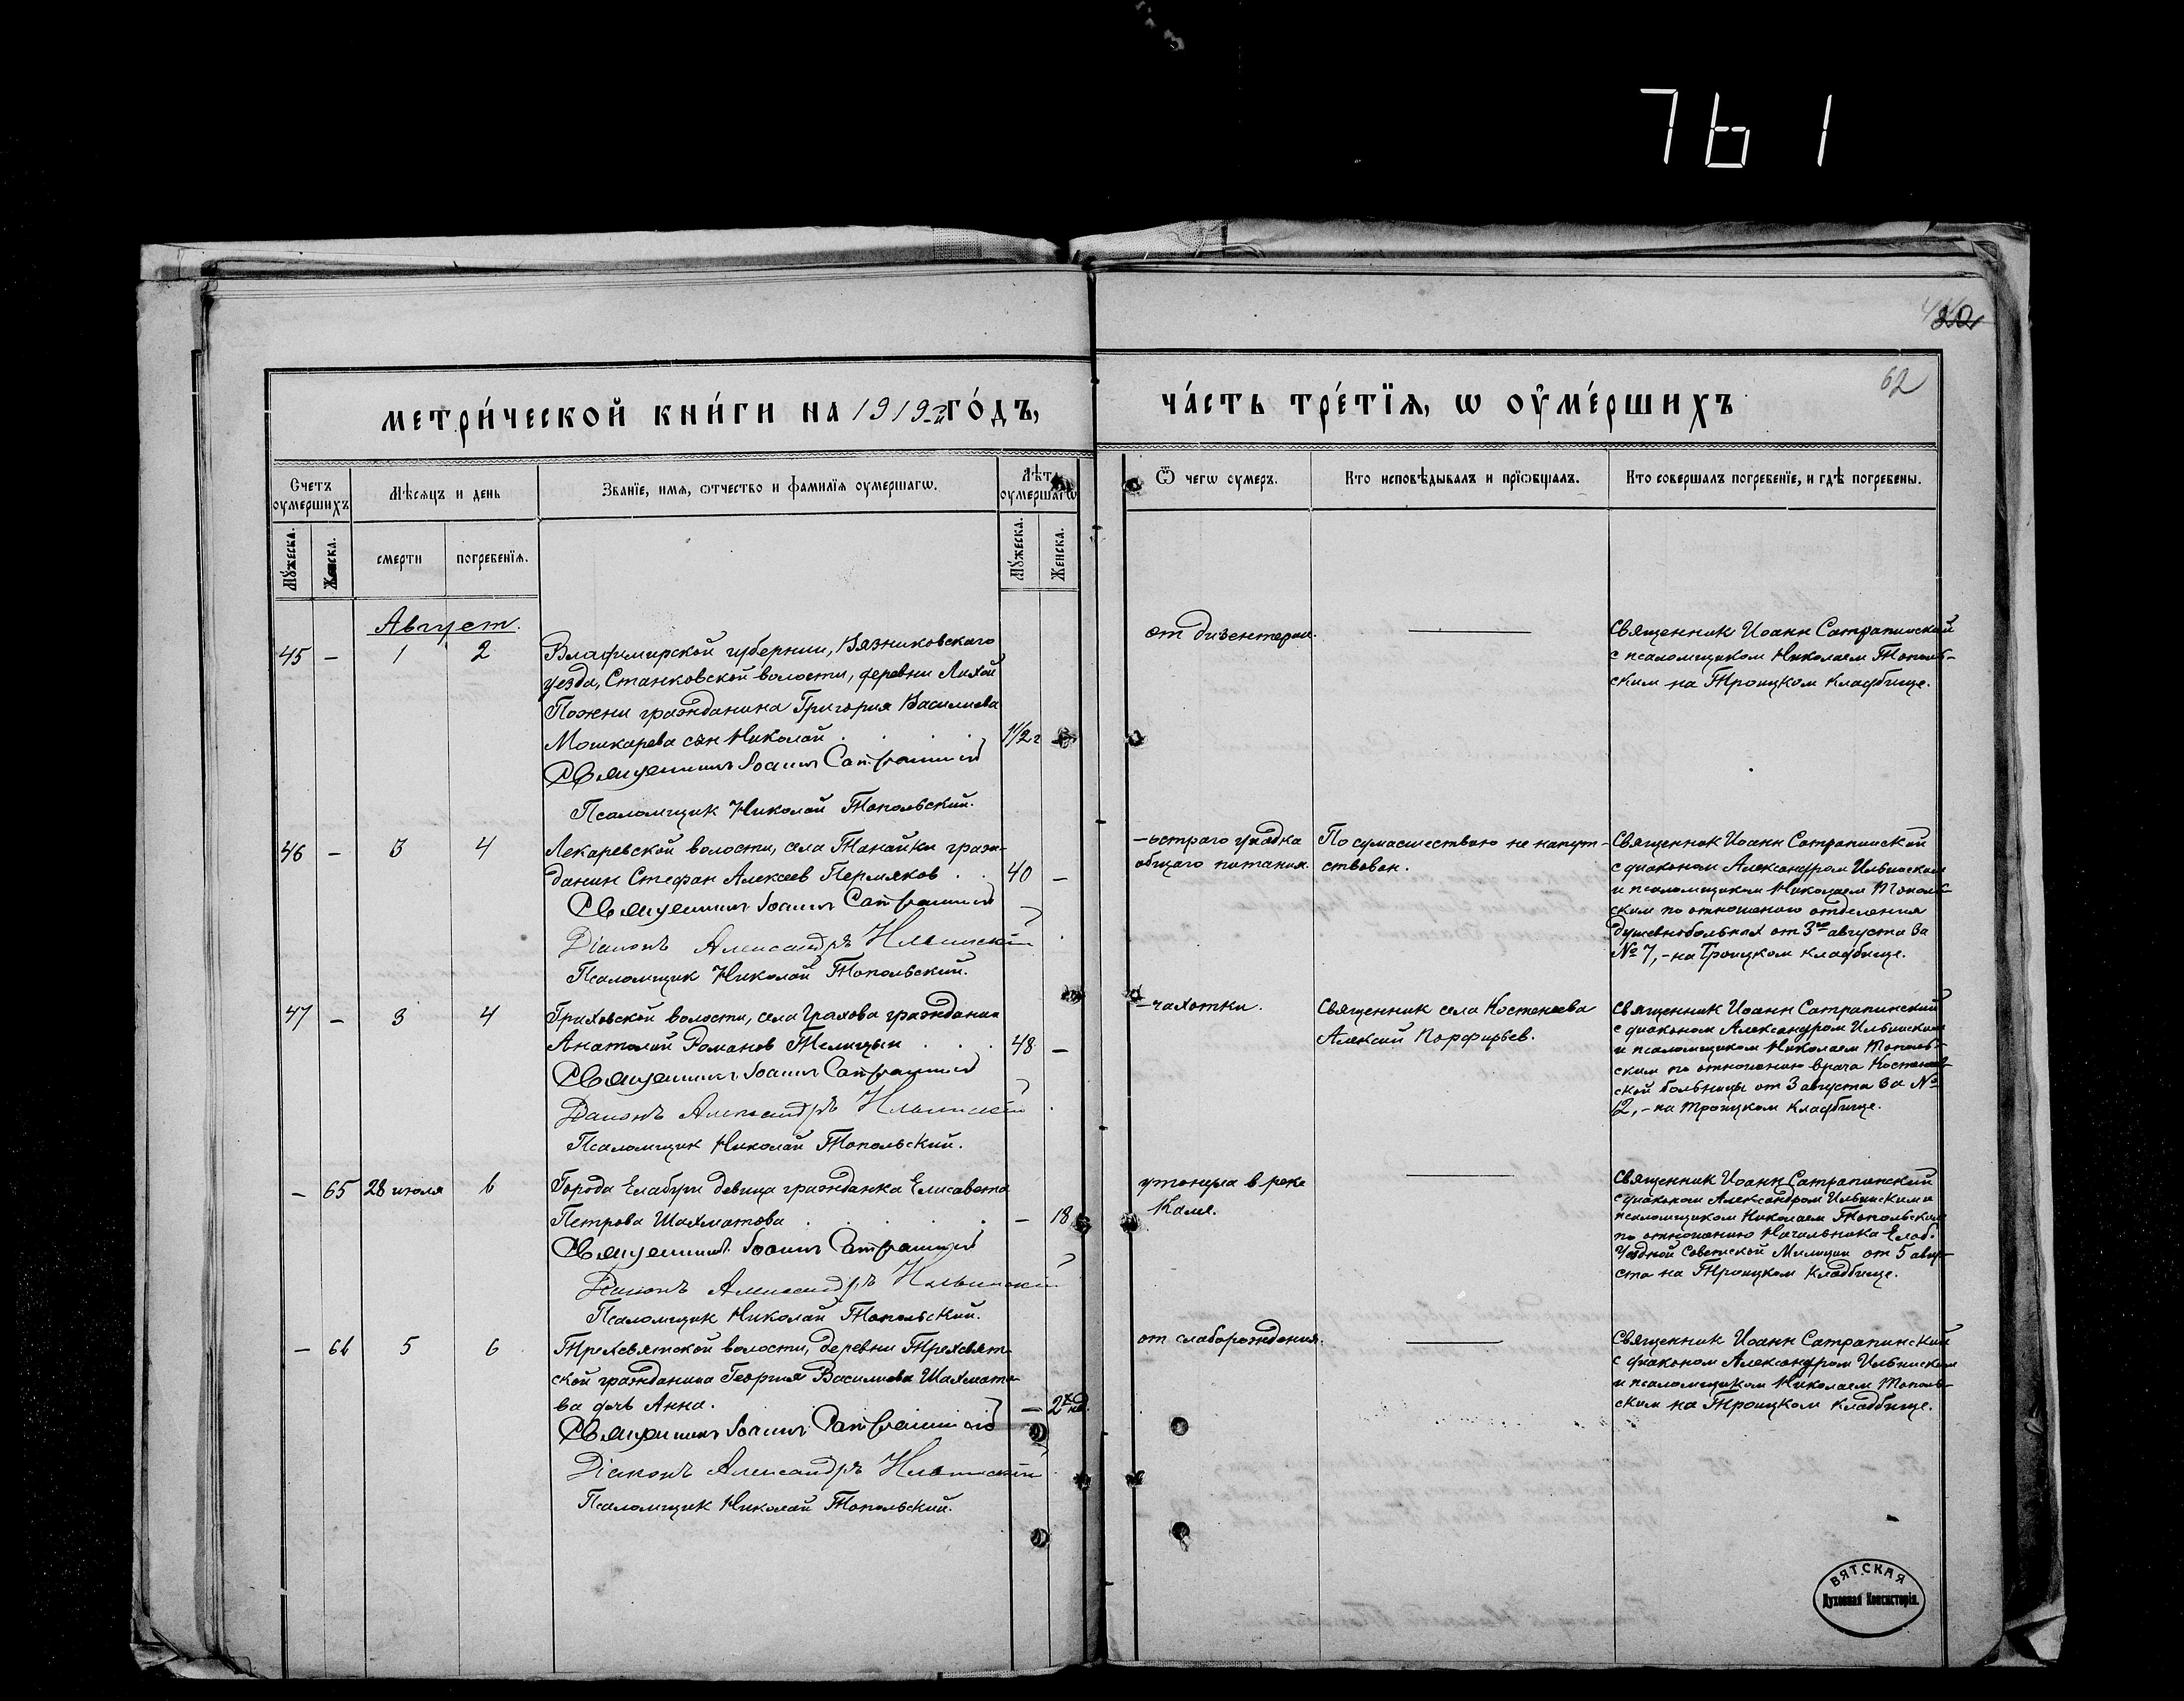 761
62
метри́ческой кни́ги на 1919 го́дъ,
ча́сть тре́тїѧ, ѡ оу҆ме́ршихъ
Счетъ оумершихъ
Мѣсяцъ и день
Званїе, имѧ, ѡтчество и фамилїѧ оумершагѡ.
Лѣта оумершагѡ
Ѿ чегѡ оумеръ.
Кто исповѣдывалъ и прїѡбщалъ.
Кто совершалъ погребенїе, и гдѣ погребены.
Мꙋжеска.
Женска.
смерти
погребенїѧ.
Мꙋжеска.
Женска.
Август.
45 – 1 2
Владимирской губернии, Вязниковского
уезда, Станковской волости, деревни Лихой
Пожни гражданина Григория Василиева
Мошкарева сын Николай . . . 1 1/2 г –
Священникъ Іоаннъ Сатрапинскій
Псаломщик Николай Топольский.
от дизентерии.
Священник Иоанн Сатрапинский
с псаломщиком Николаем Тополь-
ским на Троицком кладбище.
46 – 3 4
Лекаревской волости, села Танайки граж-
данин Стефан Алексеев Пермяков . . 40 –
Священникъ Іоаннъ Сатрапинскій
Діаконъ Александръ Ильинскій
Псаломщик Николай Топольский.
– остраго упадка
общаго питания.
По сумасшествию не напут-
ствован.
Священник Иоанн Сатрапинский
с диаконом Александром Ильинским
и псаломщиком Николаем Тополь-
ским по отношению отделения
душевнобольных от 3го августа за
№ 7, – на Троицком кладбище.
47 – 3 4
Граховской волости, села Грахова гражданин
Анатолий Романов Телицын . . . 48 –
Священникъ Іоаннъ Сатрапинскій
Діаконъ Александръ Ильинскій
Псаломщик Николай Топольский.
– чахотки.
Священник села Костенеева
Алексий Порфирьев.
Священник Иоанн Сатрапинский
с диаконом Александром Ильинским
и псаломщиком Николаем Тополь-
ским по отношению врача Костенеев-
ской больницы от 3 августа за №
12, – на Троицком кладбище.
– 65 28 июля 6
Города Елабуги девица гражданка Елисавета
Петрова Шахматова . . . . – 18
Священникъ Іоаннъ Сатрапинскій
Діаконъ Александръ Ильинскій
Псаломщик Николай Топольский.
утонула в реке
Каме.
Священник Иоанн Сатрапинский
с диаконом Александром Ильинским и
псаломщиком Николаем Топольским
по отношению Начальника Елаб.
Уездной Советской Милиции от 5 авгу-
ста на Троицком кладбище.
– 66 5 6
Трехсвятской волости, деревни Трехсвят-
ской гражданина Георгия Василиева Шахмато-
ва дочь Анна. – 2х нд.
Священникъ Іоаннъ Сатрапинскій
Діаконъ Александръ Ильинскій
Псаломщик Николай Топольский.
от слаборождения.
Священник Иоанн Сатрапинский
с диаконом Александром Ильинским
и псаломщиком Николаем Тополь-
ским на Троицком кладбище.
ВЯТСКАЯ
Духовная Консисторія.